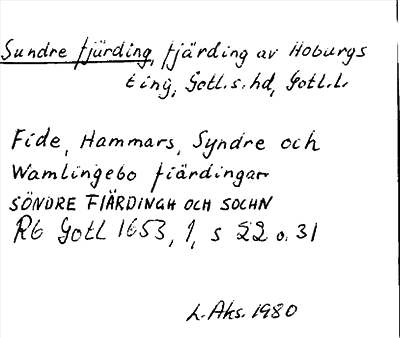 Sundre fjärding, fjärding av Hoburgs
ting, Gotl.s.hd, Gotl.l.
Fide, Hammars, Syndre och
Wamlingebo fiärdingar
SÖNDRE FIÄRDINGH OCH SOCHN
Rb Gotl 1653, 1, s 22 o. 31
L. Aks. 1980